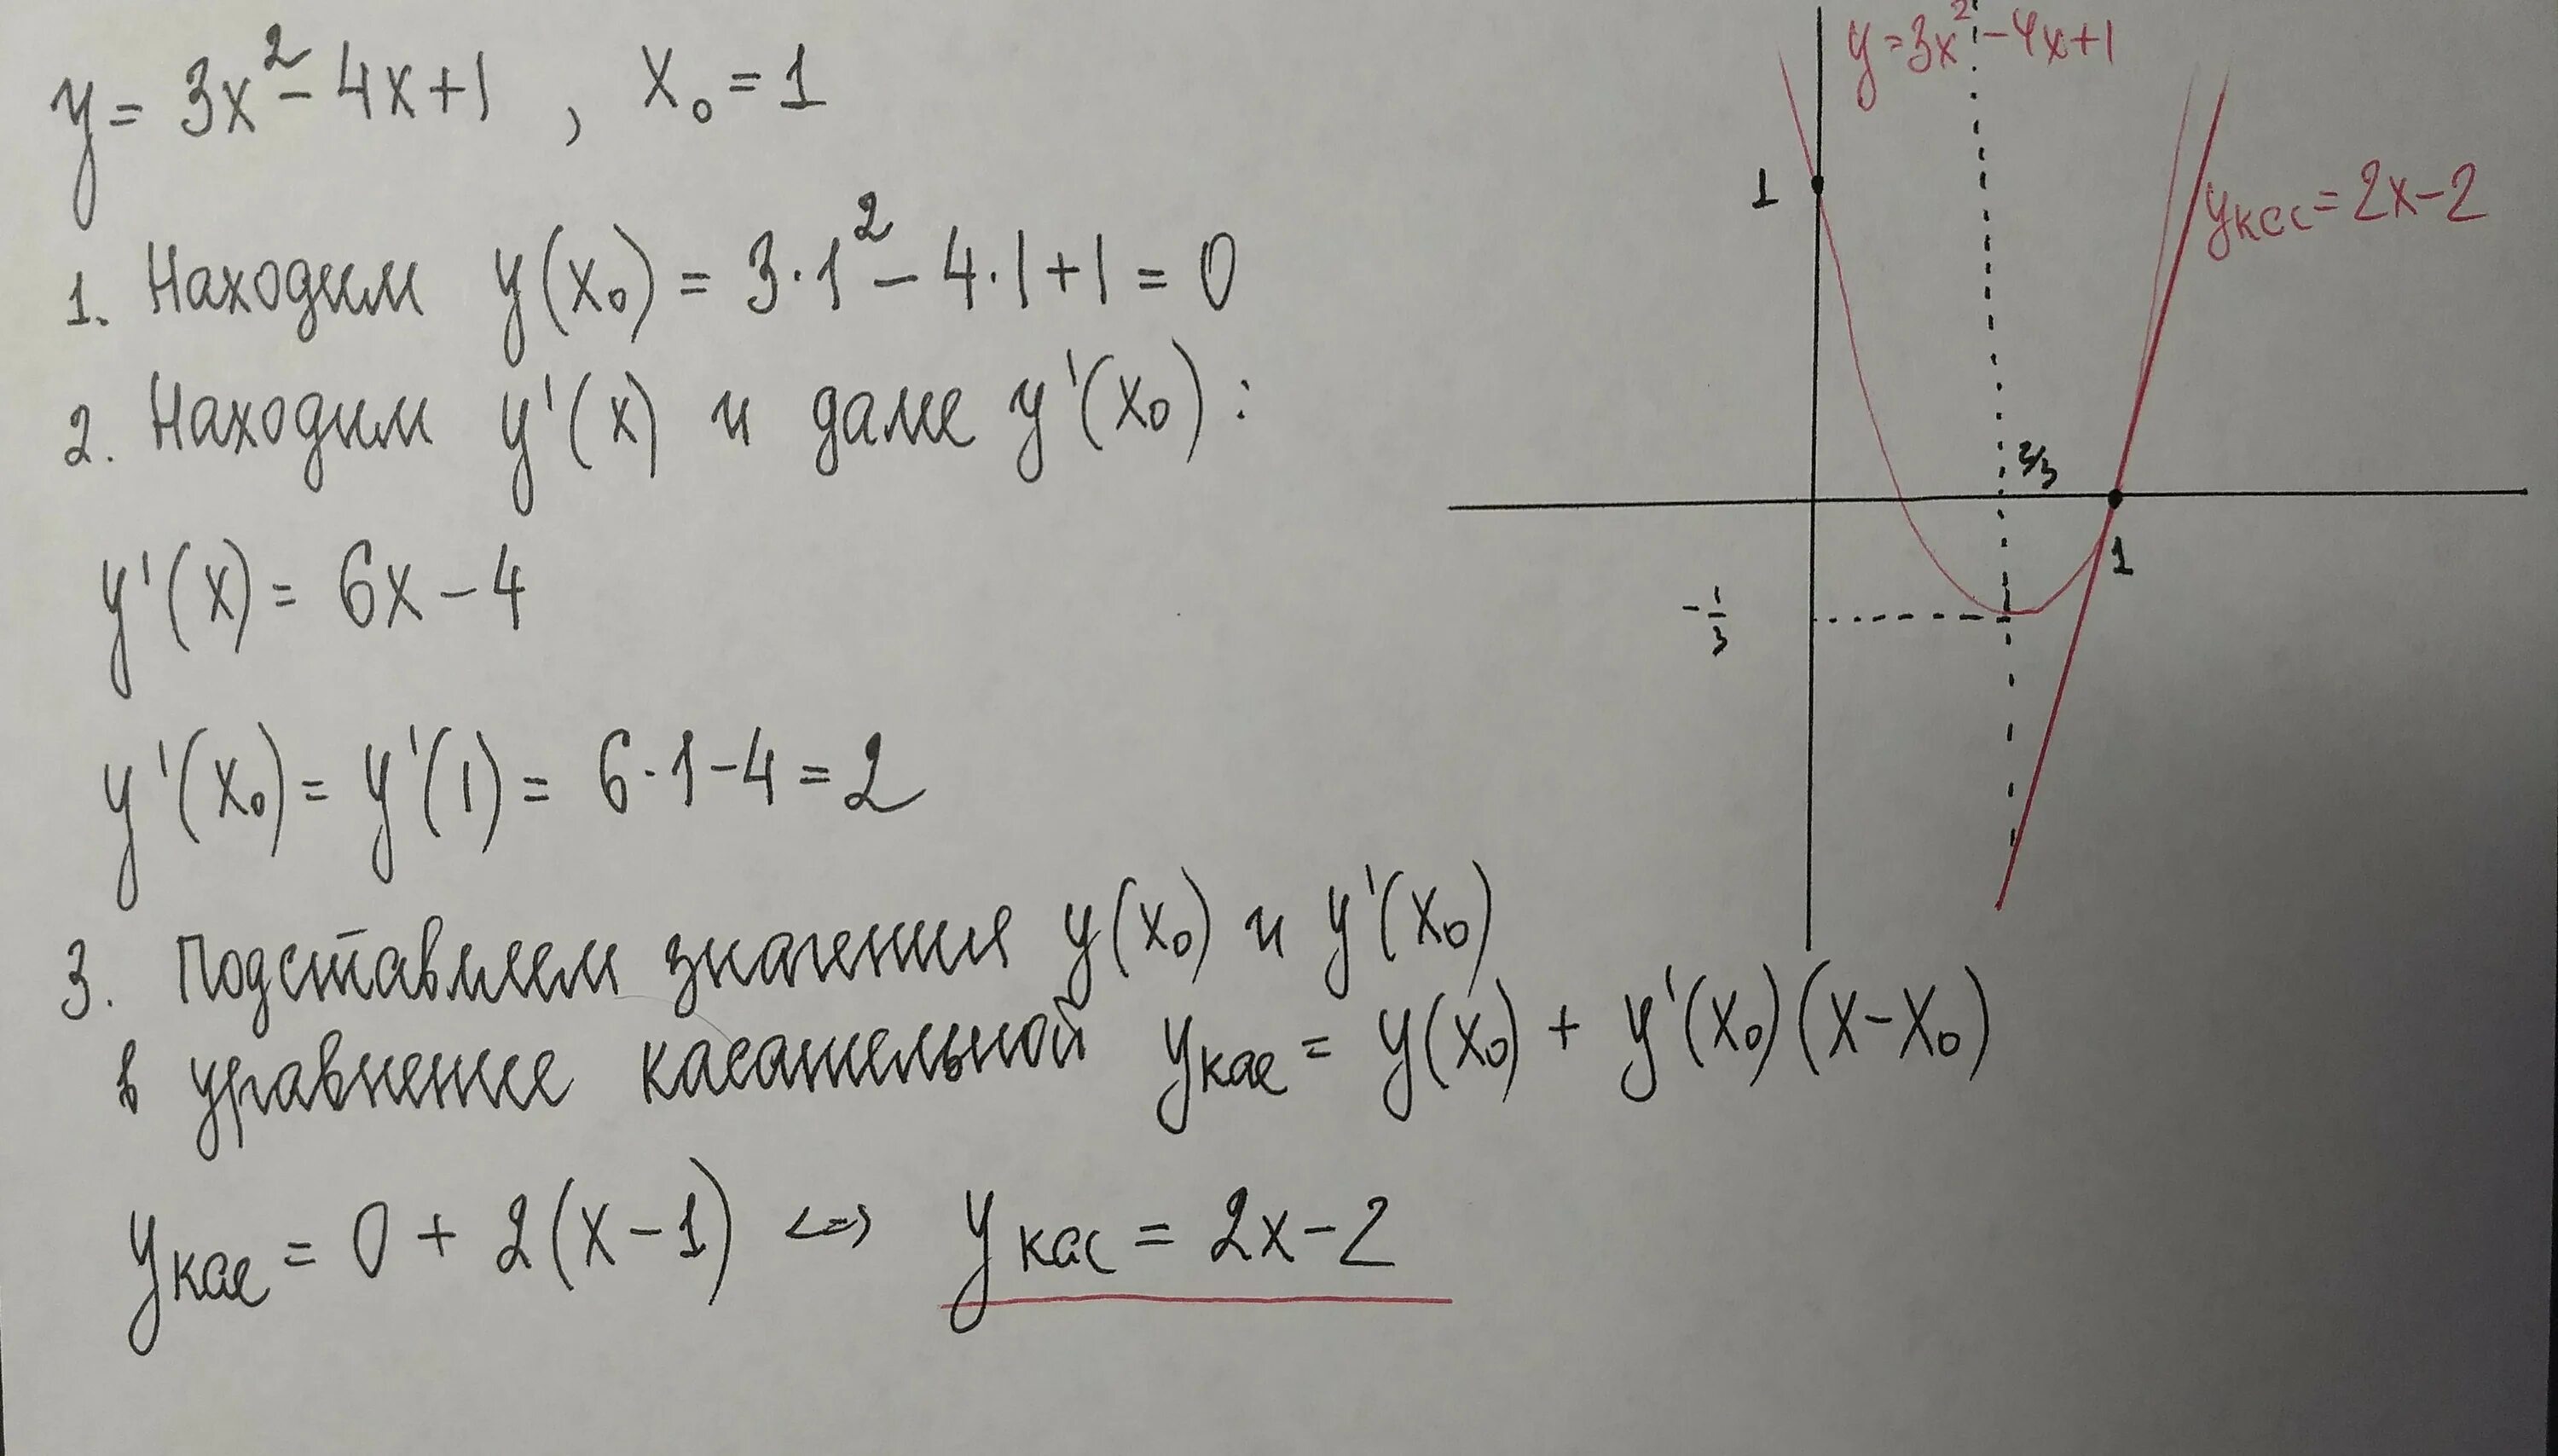 y = 3x² - 4x + 1 , x₀ = 1
1. Находим y(x₀) = 3·1² - 4·1 + 1 = 0
2. Находим y'(x) и далее y'(x₀) :
y'(x) = 6x - 4
y'(x₀) = y'(1) = 6·1 - 4 = 2
3. Подставляем значения y(x₀) и y'(x₀)
в уравнение касательной yкас = y(x₀) + y'(x₀)(x - x₀)
yкас = 0 + 2(x - 1) <=> yкас = 2x - 2
y = 3x² - 4x + 1
1
yкас = 2x - 2
2/3
1
-1/3